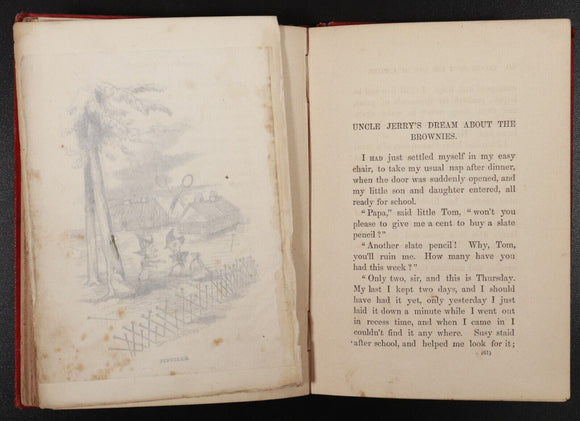 UNCLE JERRY'S DREAM ABOUT THE
BROWNIES.
I HAD just settled myself in my easy
chair, to take my usual nap after dinner,
when the door was suddenly opened, and
my little son and daughter entered, all
ready for school.
"Papa," said little Tom, "won't you
please to give me a cent to buy a slate
pencil?"
"Another slate pencil! Why, Tom,
you'll ruin me. How many have you
had this week?"
"Only two, sir, and this is Thursday.
My last I kept two days, and I should
have had it yet, only yesterday I just
laid it down a minute while I went out
in recess time, and when I came in I
couldn't find it any where. Susy staid
after school, and helped me look for it;